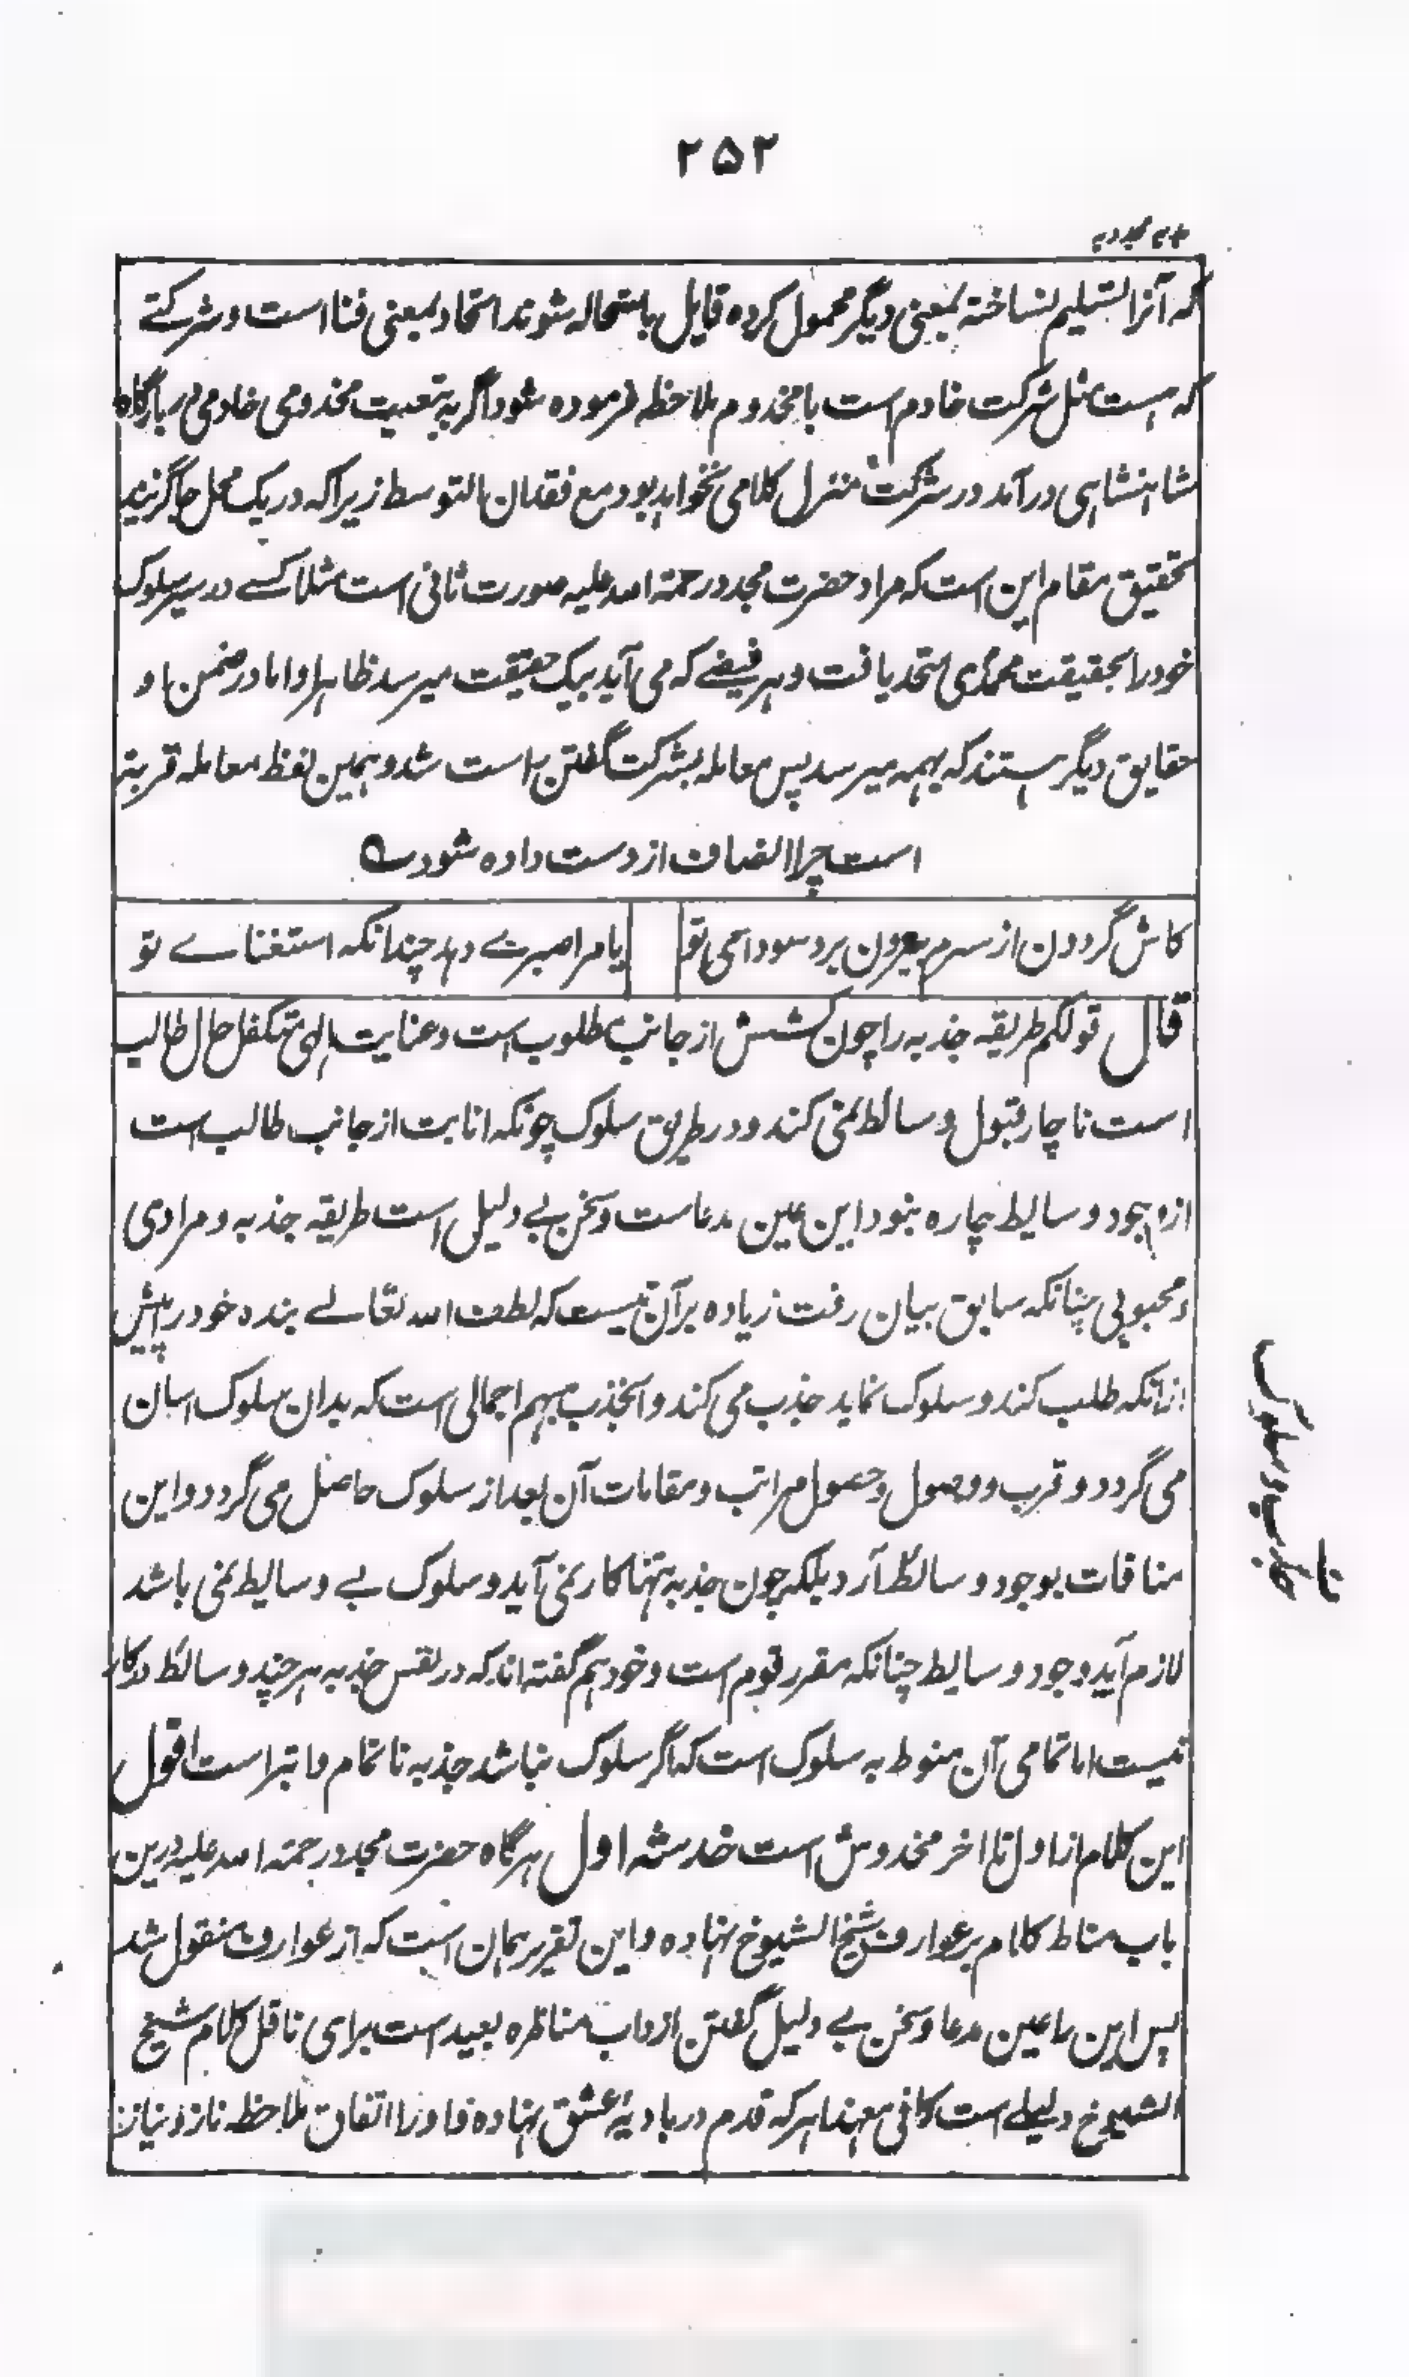 ۲۵۲
که آنرا تسلیم نساخته بمعنی دیگر محمول کرده قایل باستحاله شوند اتحاد بمعنی فنا است و شرکتے
که هست مثل شرکت خادم است با مخدوم ملاحظه فرموده شود اگر به تبعیت مخدومی خادمی در بارگاه
شاهنشاهی در آمد در شرکت منزل کلامی نخواهد بود مع فقدان التوسط زیرا که در یک محل جا گزیند
تحقیق مقام این است که مراد حضرت مجدد رحمة الله علیه صورت ثانی است مثلا کسے در سیر سلوک
خود را بحقیقت محمدی متحد یافت و هر فیضے که می آید بیک حقیقت میرسد ظاهرا و اما در ضمن او
حقایق دیگر هستند که بهمه میرسد پس معامله بشرکت گفتن راست شد و همین لفظ معامله قرینه
است چرا انصاف از دست داده شود
کاش گردون از سرم بیرون برد سودامی تو
یا مرا صبرے دهد چندانکه استغناے تو
قال قولکم طریقه جذبه را چون کشش از جانب مطلوب است و عنایت الهی متکفل حال طالب
است ناچار قبول وسائط نمی کند و در طریق سلوک چونکه انابت از جانب طالب است
از وجود وسایط چاره نبود این عین مدعاست و سخن بے دلیل است طریقه جذبه و مرادی
و محبوبی چنانکه سابق بیان رفت زیاده بر آن نیست که لطف الله تعالے بنده خود را پیش
ازانکه طلب کند و سلوک نماید جذب می کند و انجذب مبهم اجمالی است که بدان سلوک اسان
می گردد و قرب و وصول و حصول مراتب و مقامات آن بعد از سلوک حاصل می گردد و این
منافات بوجود وسائط آرد بلکه چون جذبه تنها کار نمی آید و سلوک بے وسایط نمی باشد
لازم آید وجود وسایط چنانکه مقرر قوم است و خود هم گفته اند که در نفس جذبه هر چند وسائط درکار
نیست اما تمامی آن منوط به سلوک است که اگر سلوک نباشد جذبه ناتمام و ابتر است اقول
این کلام از اول تا اخر مخدوش است خدشه اول هرگاه حضرت مجدد رحمة الله علیه درین
باب مناط کلام بر عوارف شیخ الشیوخ نهاده و این تقریر همان است که از عوارف منقول شد
پس این را عین مدعا و سخن بے دلیل گفتن از داب مناظره بعید است برای ناقل کلام شیخ
الشیوخ دلیلے است کافی معهذا هر که قدم در بادیۀ عشق نهاده و او را اتفاق ملاحظه ناز و نیاز